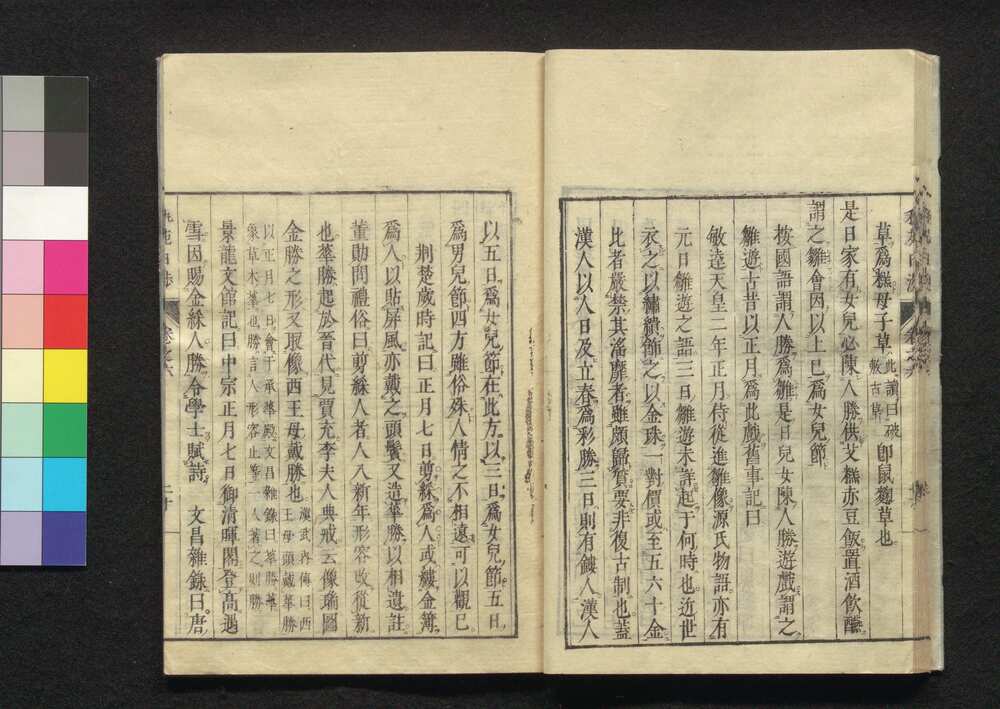 草爲糕母子草此讀曰破敝古草即鼠麴草也
是日家有女兒必陳人勝供艾糕赤豆飯置酒飲醼
謂之雛會因以上巳爲女兒節
按國語謂人勝爲雛是日兒女陳人勝遊戲謂之
雛遊古昔以正月爲此戲舊事記曰
敏達天皇二年正月侍從進雛像源氏物語亦有
元日雛遊之語三日雛遊未詳起于何時也近世
衣之以繡繢飾之以金珠一對價或至五六十金
比者嚴禁其淫靡者雖頗歸質要非復古制也蓋
漢人以人日及立春爲彩勝三日則有鏤人漢人
以五日爲女兒節在此方以三日爲女兒節五日
爲男兒節四方雖俗殊人情之不相遠可以觀已
荆楚歲時記曰正月七日剪綵爲人或縷金簿
爲人以貼屏風亦戴之頭鬢又造華勝以相遺註
董勛問禮俗曰剪綵人者人入新年形容改從新
也華勝起於晉代見賈充李夫人典戒云像瑞圖
金勝之形又取像西王母戴勝也漢武内傳曰西王母頭戴華勝
以正月七日會于承華殿文昌雜錄曰華勝華象草木華也勝言人形容止等一人著之則勝
景龍文館記曰中宗正月七日御清暉閣登高遇
雪因賜金綵人勝令學士賦詩 文昌雜錄曰唐
卷之六
二十